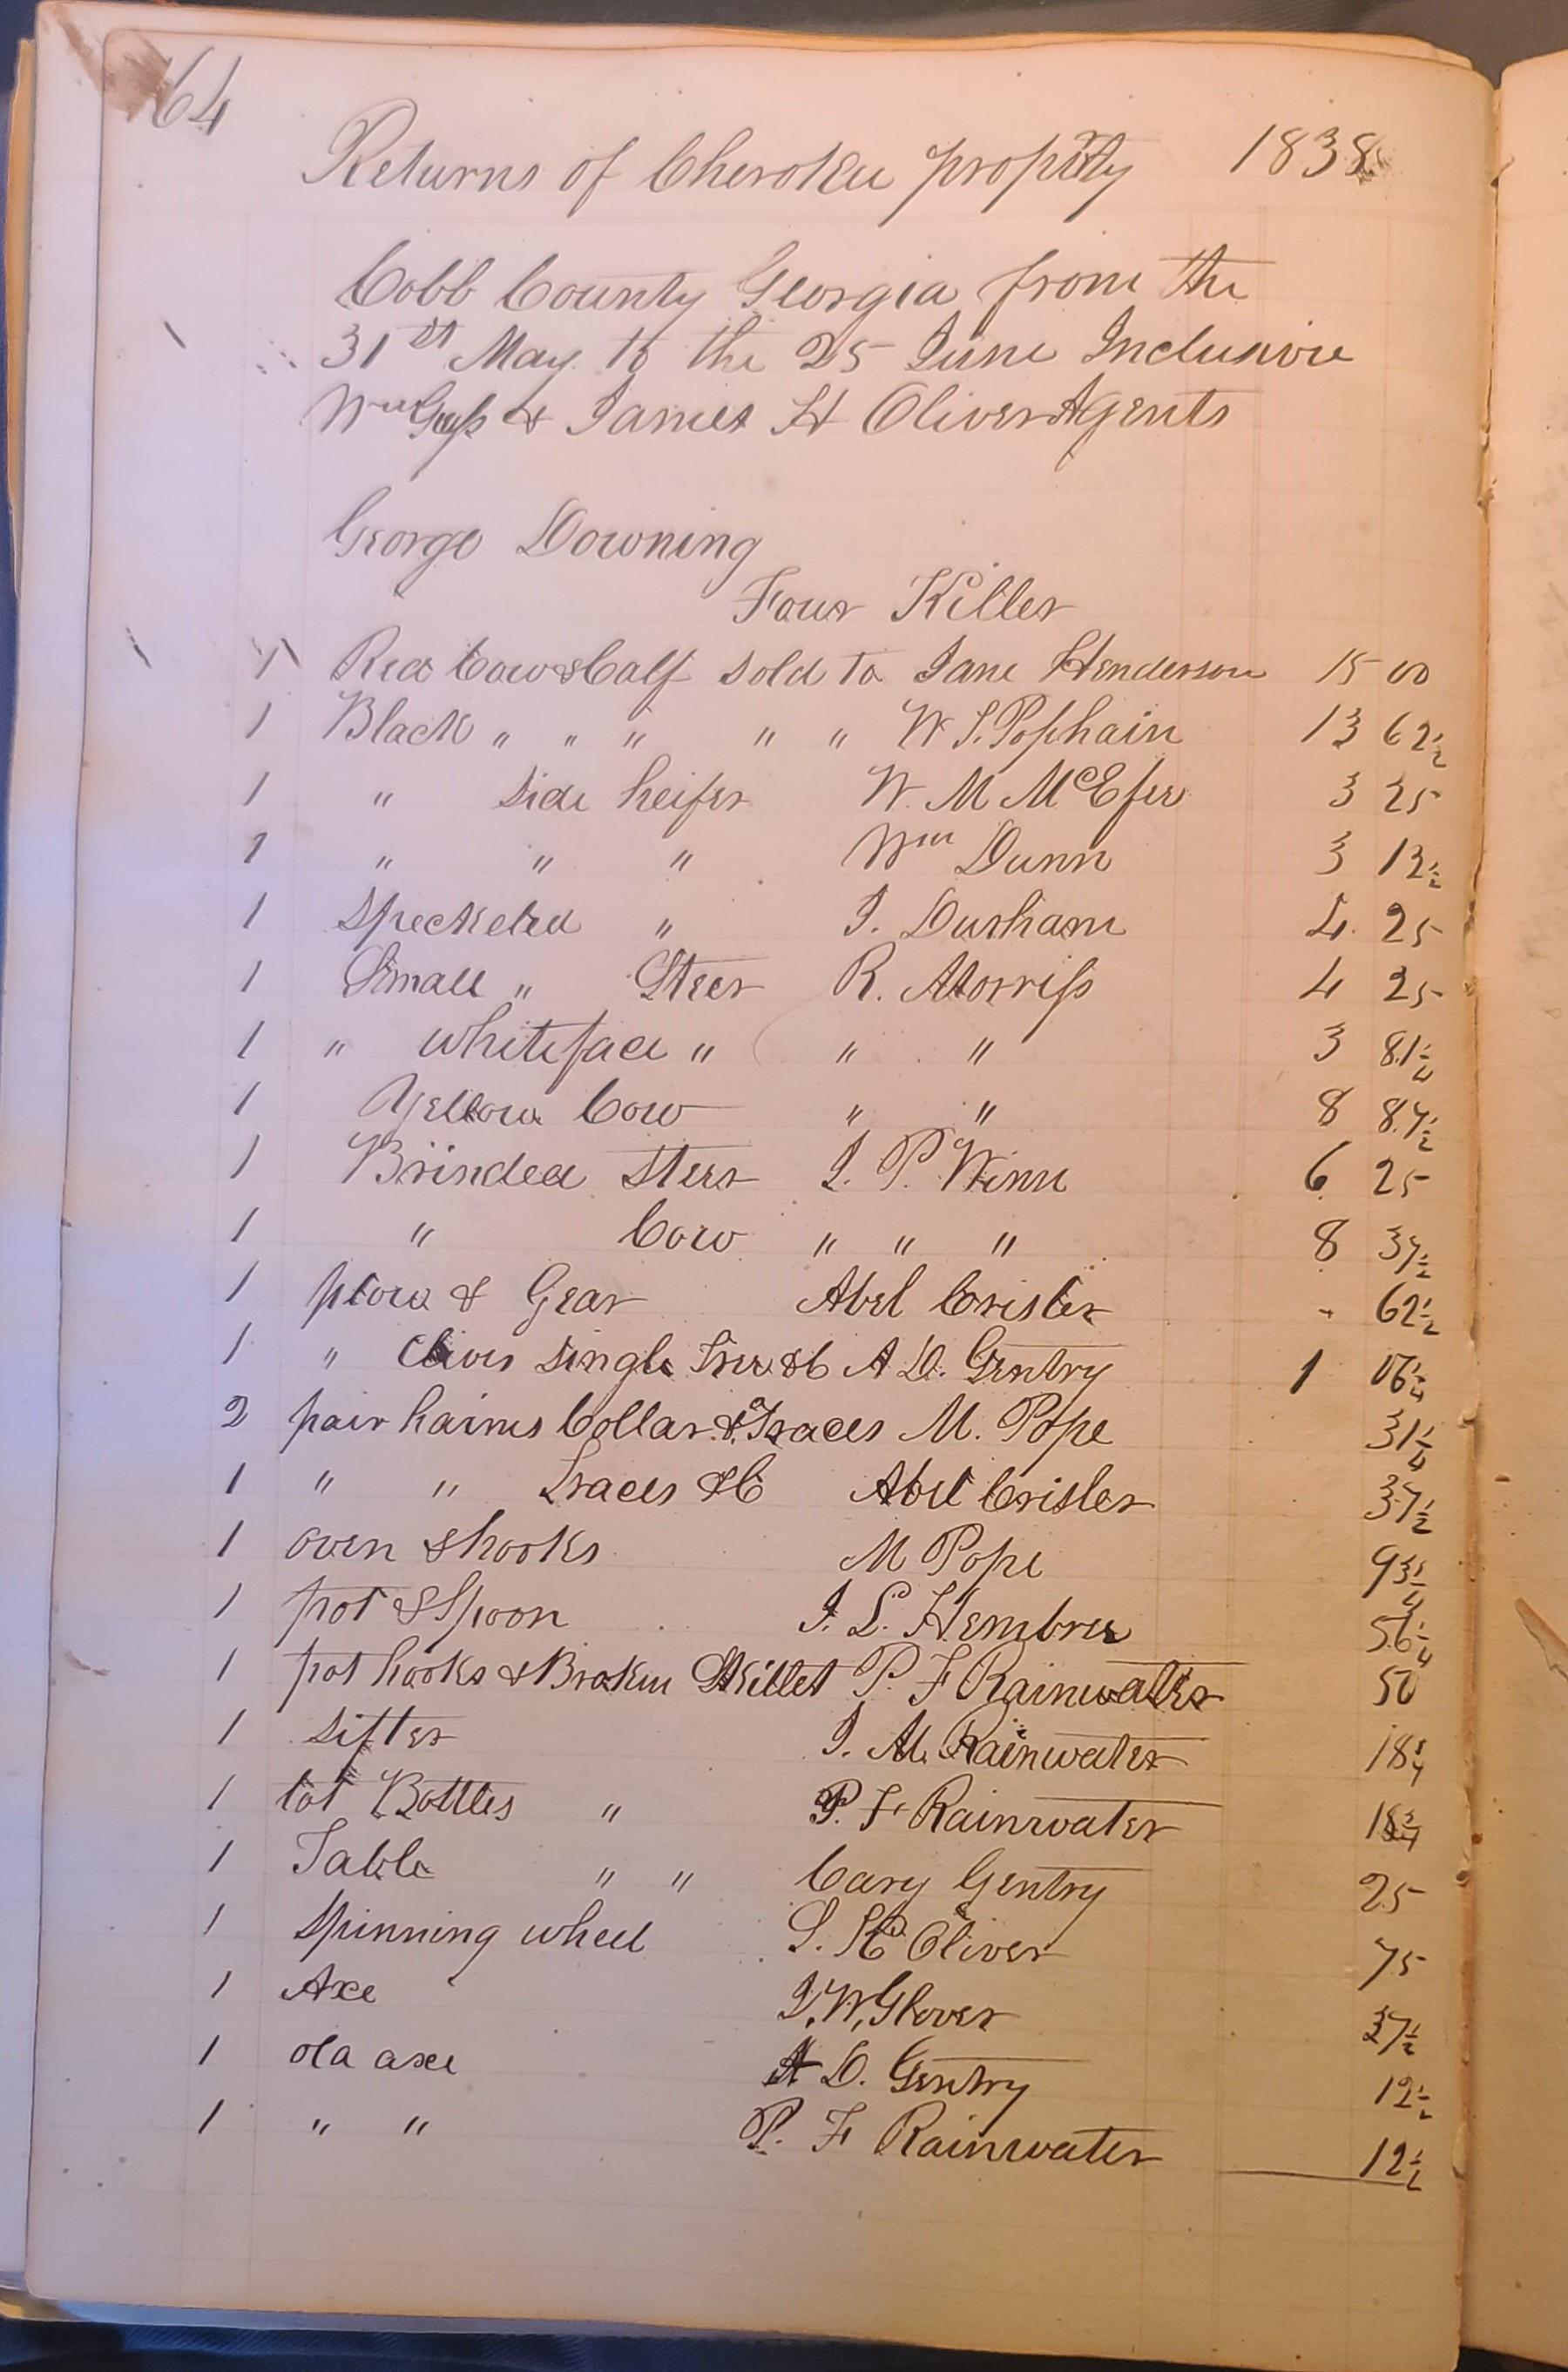 64
Returns of Cherokee property 1838
Cobb County Georgia from the
31st May to the 25 June Inclusive
Wm & James H Oliver Agents
George Downing
Four Killer
1 Red Cow & Calf sold to Jane Henderson 15 00
1 Black " " " " " W. S. Pophain 13 62 1/2
1 " side heifer W. M 3 25
1 " " " Wm Dunn 3 12 1/2
1 Speckeled " J. Durham 4 25
1 Small " Steer R. Morriss 4 25
1 " whiteface " " " 3 81 1/4
1 Yellow Cow " " 8 87 1/2
1 Brinded Steer J. P. Winn 6 25
1 " Cow " " " 8 37 1/2
1 plow & Gear Abel Crisler - 62 1/2
1 " single tree &C A D. Gentry 1 06 1/4
2 pair haims Collar & Traces M. Pope 31 1/4
1 " " Traces &C Abel Crisler 37 1/2
1 oven & hooks M Pope 93 3/4
1 pot & Spoon J. L. Hembree 56 1/4
1 pot hooks & Broken Skillet P. F Rainwater 50
1 Sifter J. M. Rainwater 18 3/4
1 lot Bottles " P. F Rainwater 18 3/4
1 Table " " Cary Gentry 25
1 Spinning wheel S. Oliver 75
1 Axe J. W. Glover 37 1/2
1 old axe A D. Gentry 12 1/2
1 " " P. F Rainwater 12 1/2